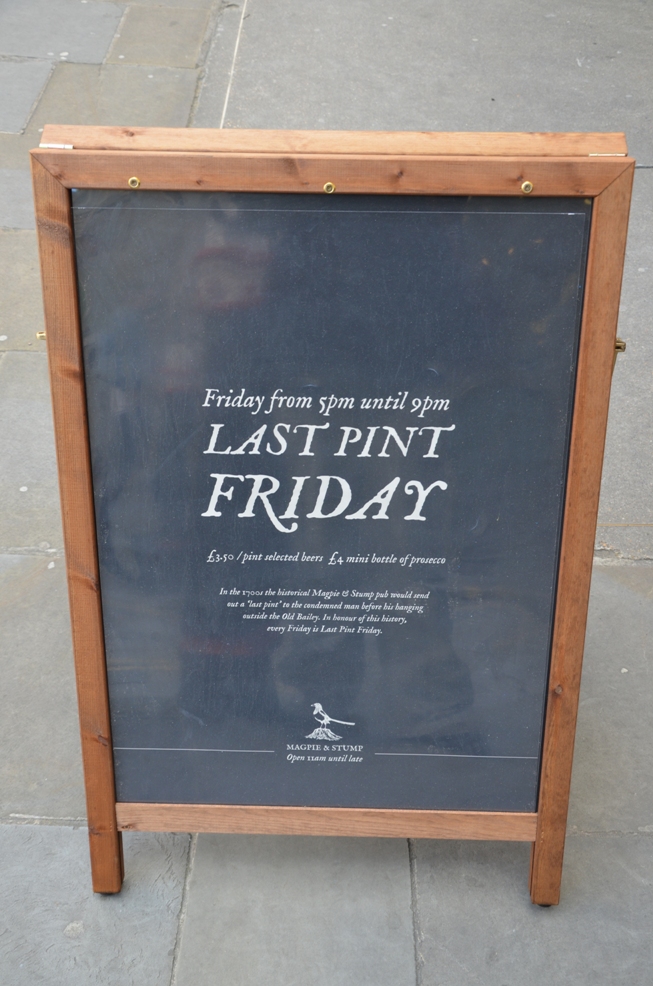 Friday from 5pm until 9pm
LAST PINT
FRIDAY
£3.50 / pint selected beers £4 mini bottle of prosecco
In the 1700s the historical Magpie & Stump pub would send
out a "last pint" to the condemned man before his hanging
outside the Old Bailey. In honour of this history,
every Friday is Last Pint Friday.
MAGPIE & STUMP
Open 11am until late